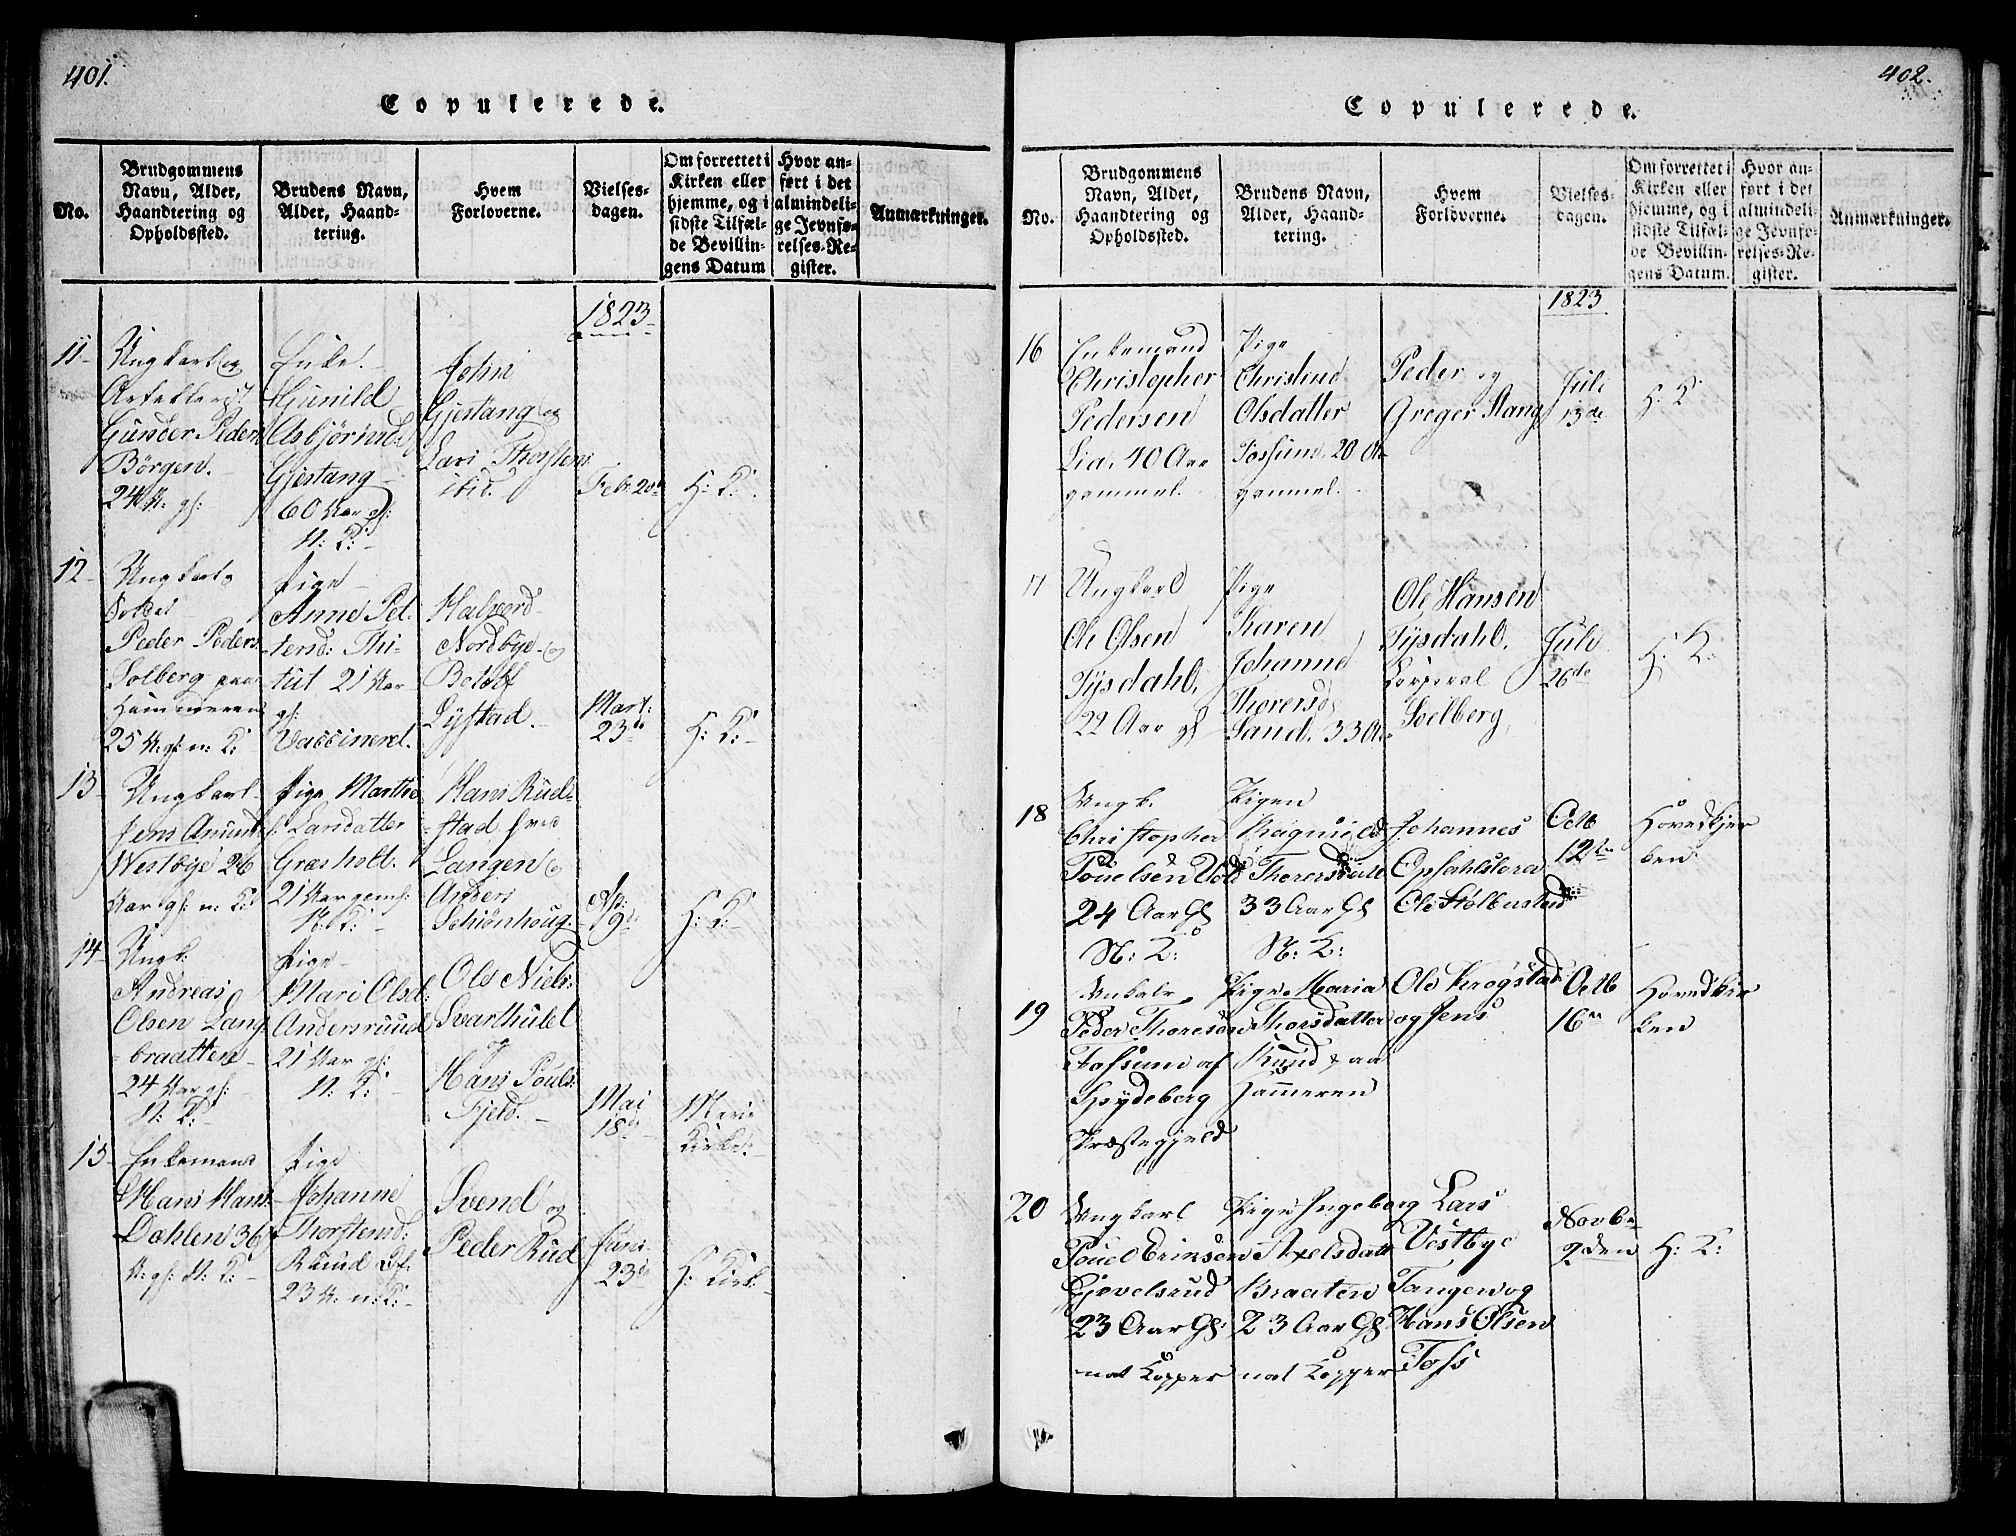 401.
Copulerede.
No.
Brudgommens
Navn, Alder,
Haandtering og
Opholdssted.
Brudens Navn,
Alder, Haand-
tering.
Hvem
Forloverne.
Vielses-
dagen.
Om forrettet i
Kirken eller
hjemme, og i
sidste Tilfæl-
de Bevillin-
gens Datum
Hvor an-
ført i det
almindeli-
ge Jevnfø-
relses-Re-
gister.
Anmærkninger.
1823
11
Ungkarl og
Gunder Peders
Børgen.
24 A: gl:
Enke
Gunild
Asbjørnsd
Gjestang
60 Aar gl:
N: K:
John
Gjestang og
Lars Thorstens
ibid.
Feb: 20de
H: K:
12
Ungkarl
Soldat
Peder Peders
Solberg paa
Hammeren
25 A: gl: n: K:
Pige
Anne Pet-
tersd: Thi-
tut 21 Aar
gl:
Vaccineret.
Halvord
Nordbye og
Botolf
Lystad.
Mart:
23de
H: K:
13
Ungkarl
Jens Amund
Westbye 26
Aar gl: n: K:
Pige Marthe
Larsdatter
Græsholt.
21 Aar geml:
N: K:
Hans Rud-
stad
Langen og
Anders
Schiønhoug.
Ap:
9de
H: K:
14
Ungk:
Andreas
Olsen Lang-
braatten
24 Aar gl:
N: K:
Pige
Mari Olsd:
Andersruud
21 Aar gl:
N: K:
Ole Niels:
Svarthulet
og
Hans Pouls:
Fjeld.
Mai
18de
Marie
Kirke:
15
Enkemand
Hans Hans:
Dahlen 36
A: gl: N: K:
Pige
Johanne
Thorstensd:
Ruud
23 A: n: K:
Svend og
Peder Rud
Juni
23de
H: Kirk
402.
Copulerede.
No.
Brudgommens
Navn, Alder,
Haandtering og
Opholdssted.
Brudens Navn,
Alder, Haand-
tering.
Hvem
Forloverne.
Vielses-
dagen.
Om forrettet i
Kirken eller
hjemme, og i
sidste Tilfæl-
de Bevillin-
gens Datum.
Hvor an-
ført i det
almindeli-
ge Jevnfø-
relses-Re-
gister.
Anmærkninger.
1823
16
Enkemand
Christopher
Pedersen
Lia. 40 Aar
gammel.
Pige
Christine
Olsdatter
Fossum. 20 A
gammel.
Peder og
Greger Stang
Juli
13de
H: K
17
Ungkarl
Ole Olsen
Tysdahl.
22 Aar gl
Pige
Karen
Johanne
Thorersd
Sand. 33 A
Ole Hansen
Tysdahl.
Korporal
Soelberg,
Juli
26de
H: K:
18
Ungk.
Christopher
Pouelsen
24 Aar Gl
N: K:
Pigen
Ragnild
Thoresdatt
33 Aar Gl
N: K:
Johannes
Opsahl
Ole Stolbustad
Octb
12te
Hovedkjer
ken
19
Ungkalr
Peder Thoresen
Fossum af
Spydeberg
Præstegjeld
Pige Maria
Thorsdatter
Ruud paa
Hammeren
Ole Krogstad
og Jens
Octb
16en
Hovedkir
ken
20
Ungkarl
Pouel Eriksen
Gjevelsrud
23 Aar Gl:
nat Kopper
Pige Ingeborg
Axelsdatt
Braaten
23 Aar Gl
nat Kopper
Lars
Vestbye
Tangen og
Hans Olsen
Foss
Novbr
2den
H: K: